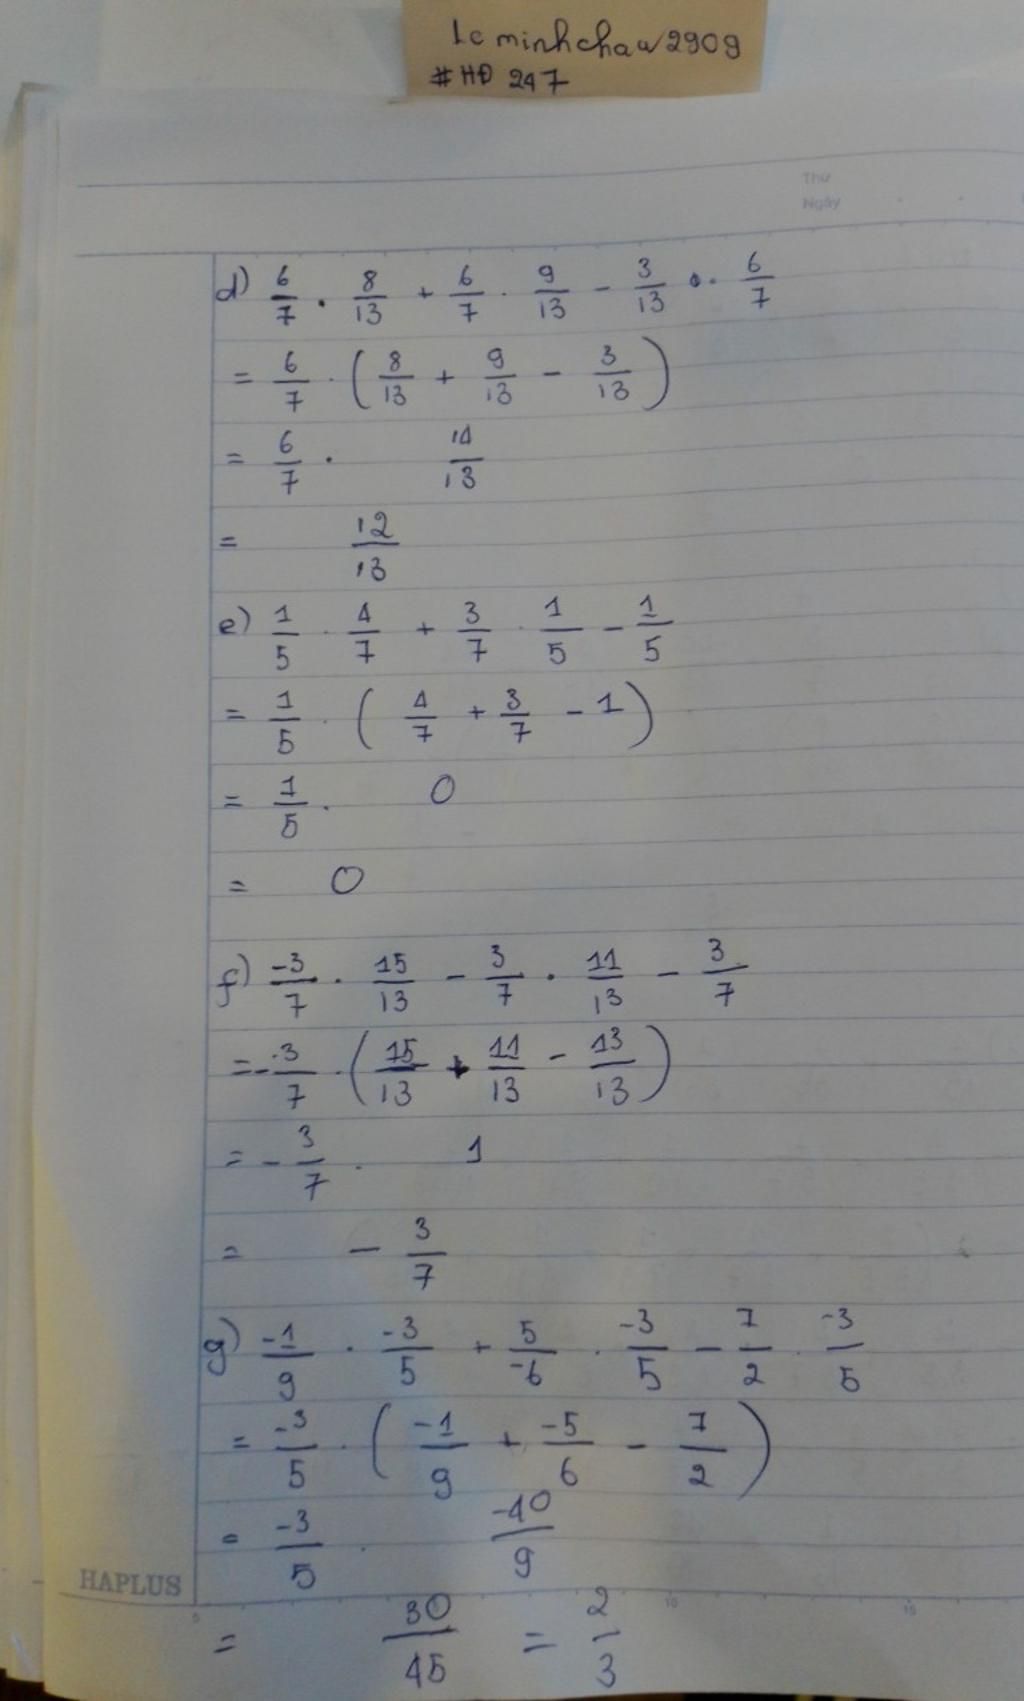 Le minhchau2909
#HĐ 247
Thứ
Ngày
d) 6/7 . 8/13 + 6/7 . 9/13 - 3/13 . 6/7
= 6/7 . (8/13 + 9/13 - 3/13)
= 6/7 . 14/13
= 12/13
e) 1/5 . 4/7 + 3/7 . 1/5 - 1/5
= 1/5 . (4/7 + 3/7 - 1)
= 1/5 . 0
= 0
f) -3/7 . 15/13 - 3/7 . 11/13 - 3/7
= -3/7 . (15/13 + 11/13 - 13/13)
= - 3/7 . 1
= - 3/7
g) -1/9 . -3/5 + 5/-6 . -3/5 - 7/2 . -3/5
= -3/5 . (-1/9 + -5/6 - 7/2)
= -3/5 . -40/9
HAPLUS
5 10 15
= 30/45 = 2/3